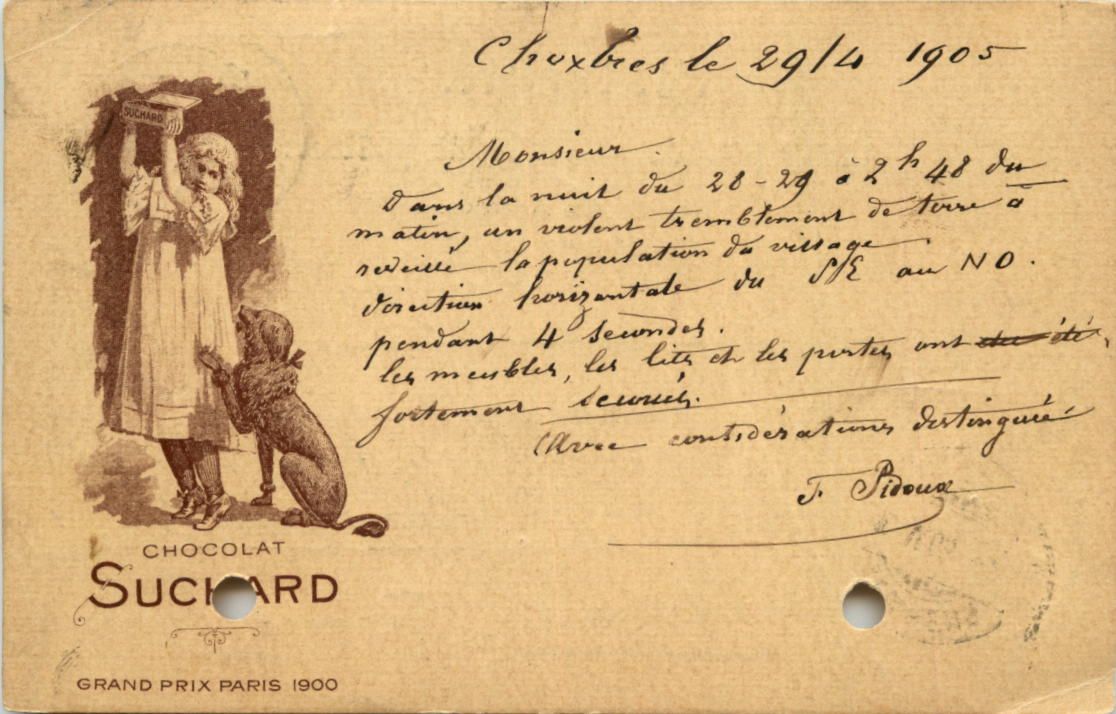 Chexbres le 29/4 1905
Monsieur.
Dans la nuit du 28-29 à 2h 48 du
matin, un violent tremblement de terre a
reveillé la population du village.
direction horizontale du S/E au NO.
pendant 4 secondes.
les meubles, les lits et les portes ont été
fortement secoués.
Avec considérations distinguée
F. Pidoux
SUCHARD
CHOCOLAT
SUCHARD
GRAND PRIX PARIS 1900